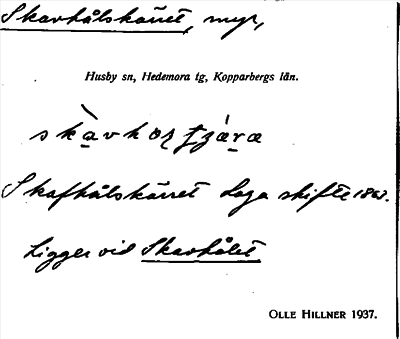 Skavhålskärret, myr,
Husby sn, Hedemora tg, Kopparbergs län.
Skafhålskärret Laga skifte 1863.
Ligger vid Skavhålet
OLLE HILLNER 1937.